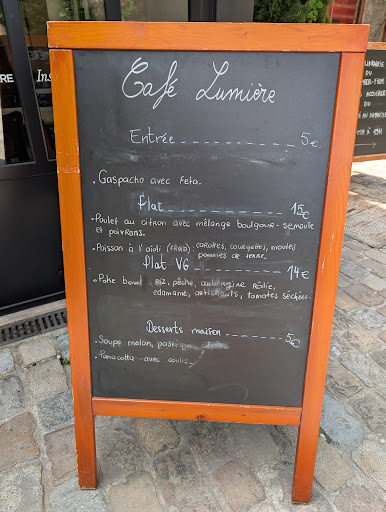 Café Lumière
Entrée ---------------- 5€
. Gaspacho avec feta.
Plat ---------------- 15€
. Poulet au citron avec mélange boulgour-semoule
et poivrons.
. Poisson à l'aïoli (FROID): carottes, courgettes, moules
pommes de terre.
Plat VG ---------------- 14€
. Poke bowl : Riz, pêche, aubergine Rôtie,
edamame, artichauts, tomates séchées.
Desserts maison --------- 5€
. Soupe melon, pastèque,
. Panacotta avec coulis